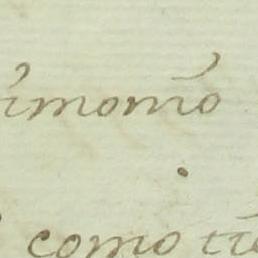 rimonio
como tie